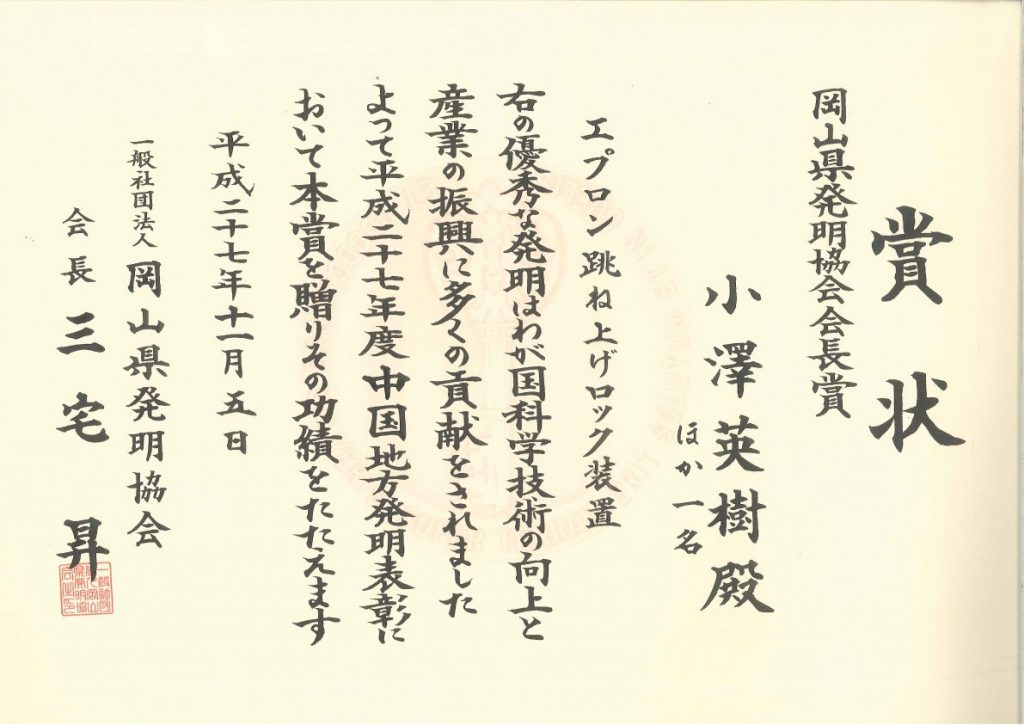 賞状
岡山県発明協会会長賞
小澤英樹殿
ほか一名
エプロン跳ね上げロック装置
右の優秀な発明はわが国科学技術の向上と
産業の振興に多くの貢献をされました
よって平成二十七年度中国地方発明表彰に
おいて本賞を贈りその功績をたたえます
平成二十七年十一月五日
一般社団法人岡山県発明協会
会長三宅昇